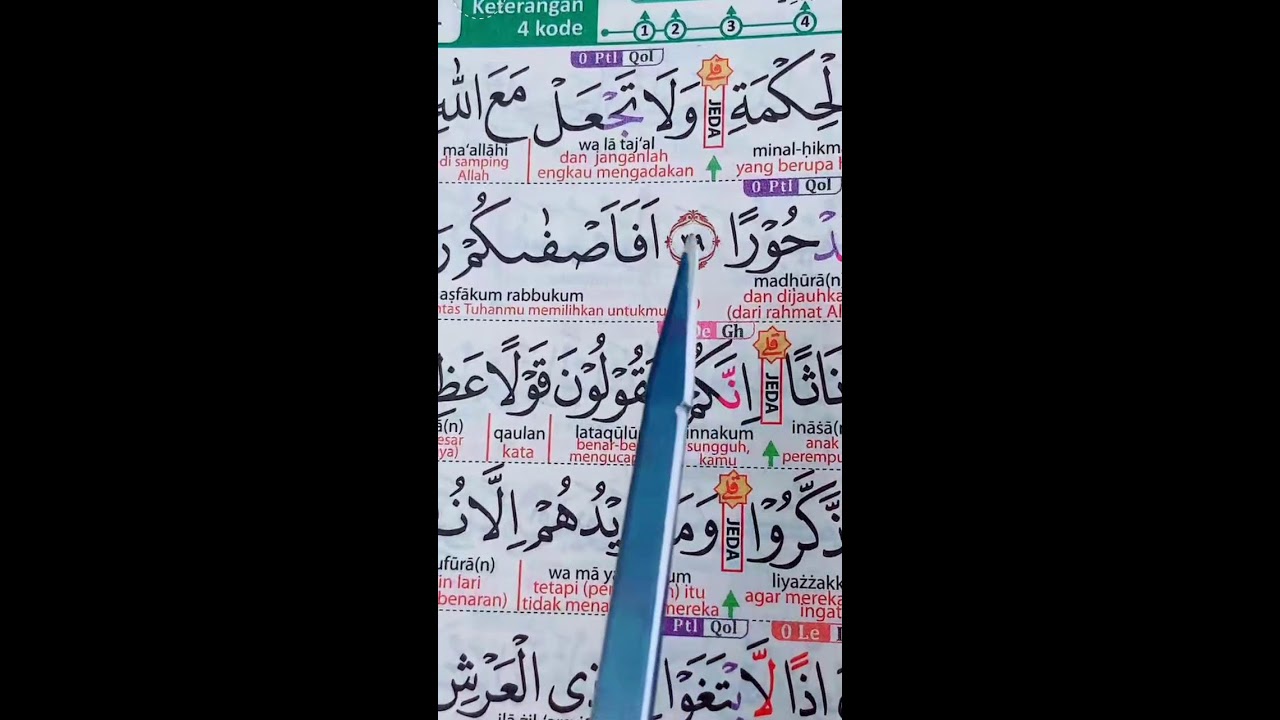 Keterangan
4 kode 1 2 3 4
0 Ptl Qol
لْحِكْمَةِ ۗ وَلَا تَجْعَلْ مَعَ اللّٰهِ
JEDA
minal-ḥikm wa lā taj‘al ma‘allāhi
yang berupa dan janganlah di samping
engkau mengadakan Allah
0 Ptl Qol
دْحُوْرًا ٣٩ اَفَاَصْفٰىكُمْ
madḥūrā(n) aṣfākum rabbukum
dan dijauhka Tuhanmu memilihkan untukmu
(dari rahmat Al
Gh
نَاثًا ۗ اِنَّكُمْ قُوْلُوْنَ قَوْلًا عَظِ
JEDA
ināṡā(n innakum lataqūlū qaulan ā(n)
anak sungguh, benar-be kata esar
perempu kamu mengucap ya)
ذَّكَّرُوْا ۗ وَمَ يْدُهُمْ اِلَّا نُ
JEDA
liyażżakk wa mā y um ufūrā(n)
agar mereka tetapi (per n) itu in lari
ingat tidak mena mereka benaran)
0 Le Ptl Qol
اِذًا لَّا بْتَغَوْا ذِى الْعَرْشِ